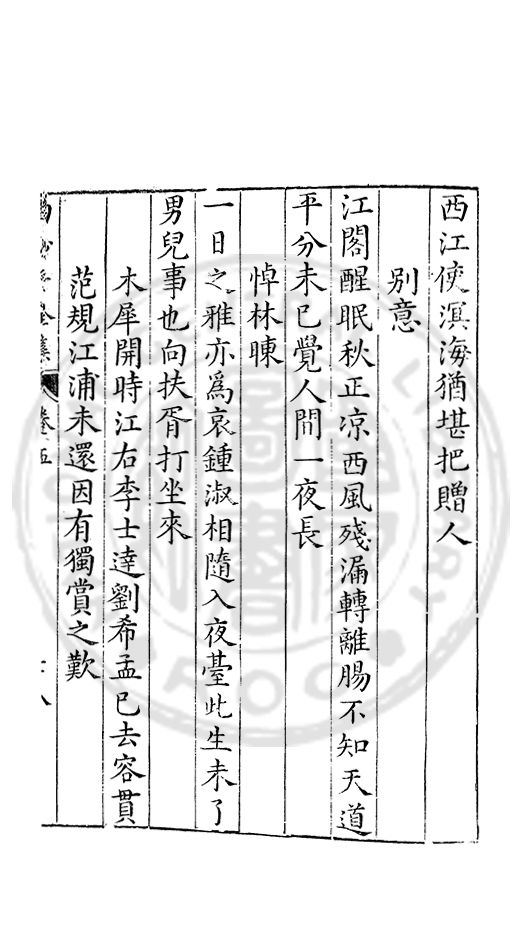 西江使溟海猶堪把贈人
別意
江閣醒眠秋正凉西風殘漏轉離腸不知天道
平分未已覺人間一夜長
悼林暕
一日之雅亦爲哀鍾淑相隨入夜臺此生未了
男兒事也向扶胥打坐來
木犀開時江右李士達劉希孟已去容貫
范規江浦未還因有獨賞之歎
卷五